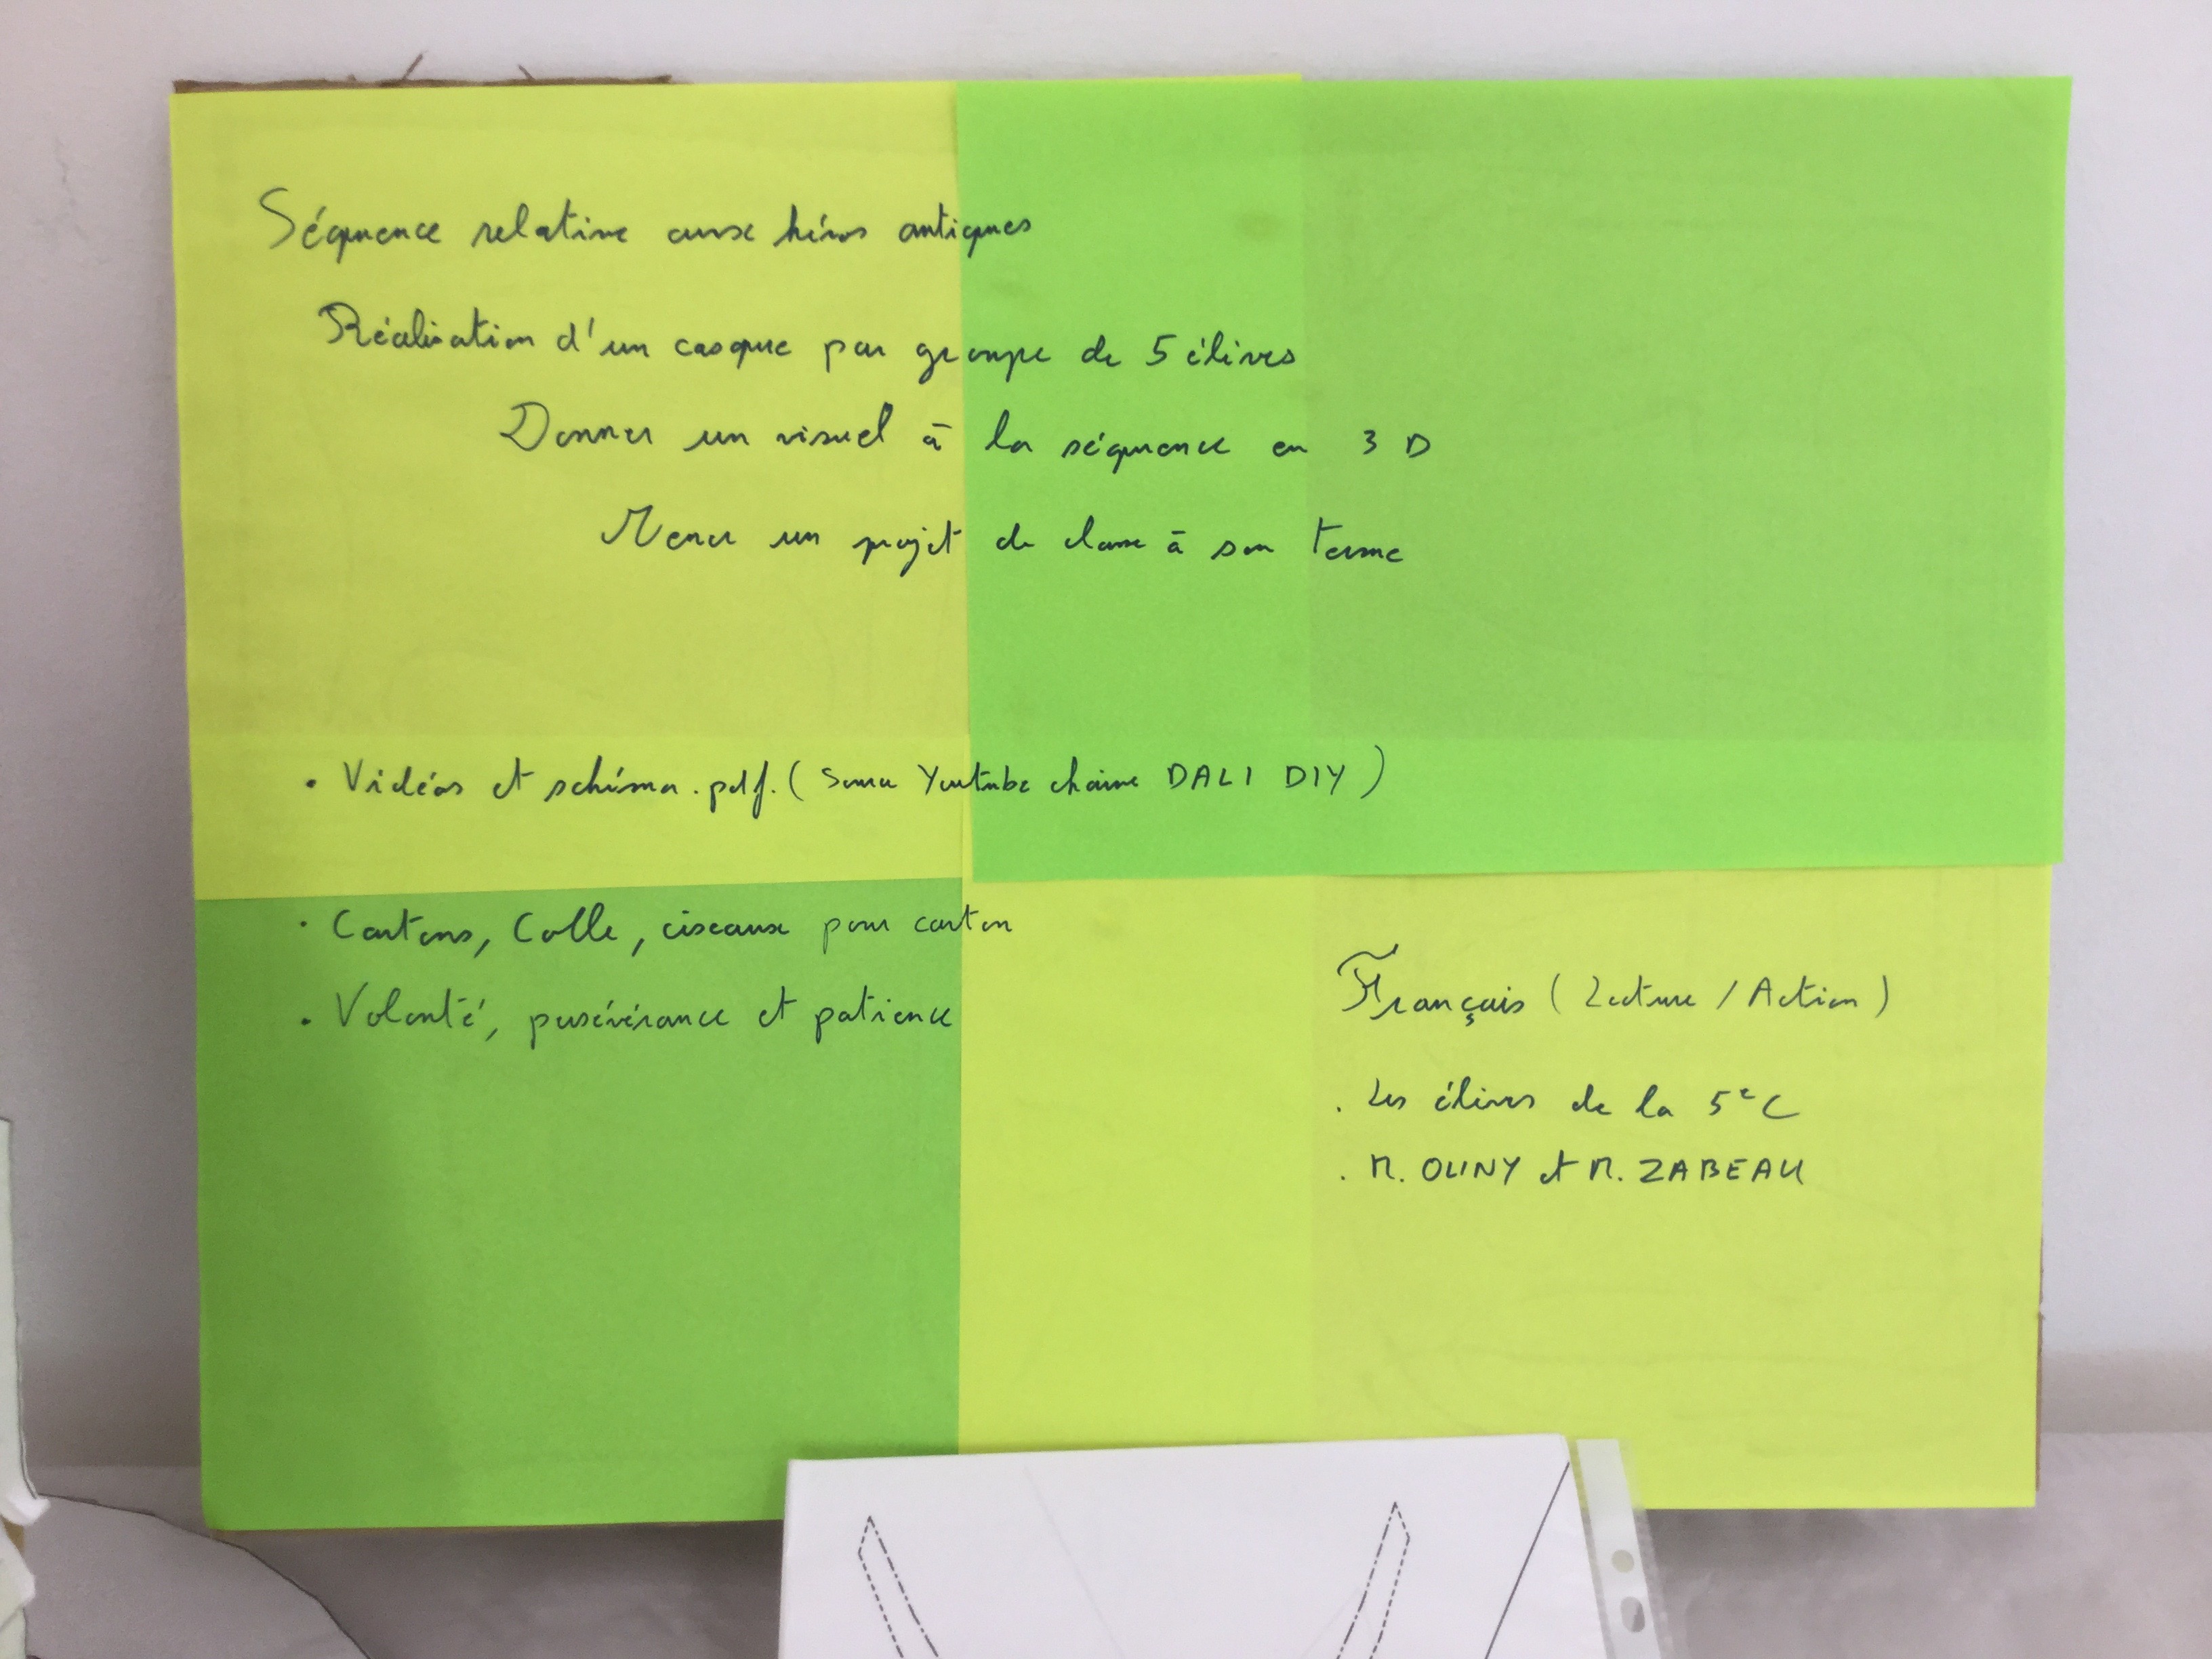 Séquence relative aux héros antiques
Réalisation d'un casque par groupe de 5 élèves
Donner un visuel à la séquence en 3 D
Mener un projet de classe à son terme
• Vidéos et schéma.pdf. ( Source Youtube chaine DALI DIY )
• Cartons, Colle, ciseaux pour carton
• Volonté, persévérance et patience
Français ( Lecture / Action )
. Les élèves de la 5e C
. M. OLINY et M. ZABEAU